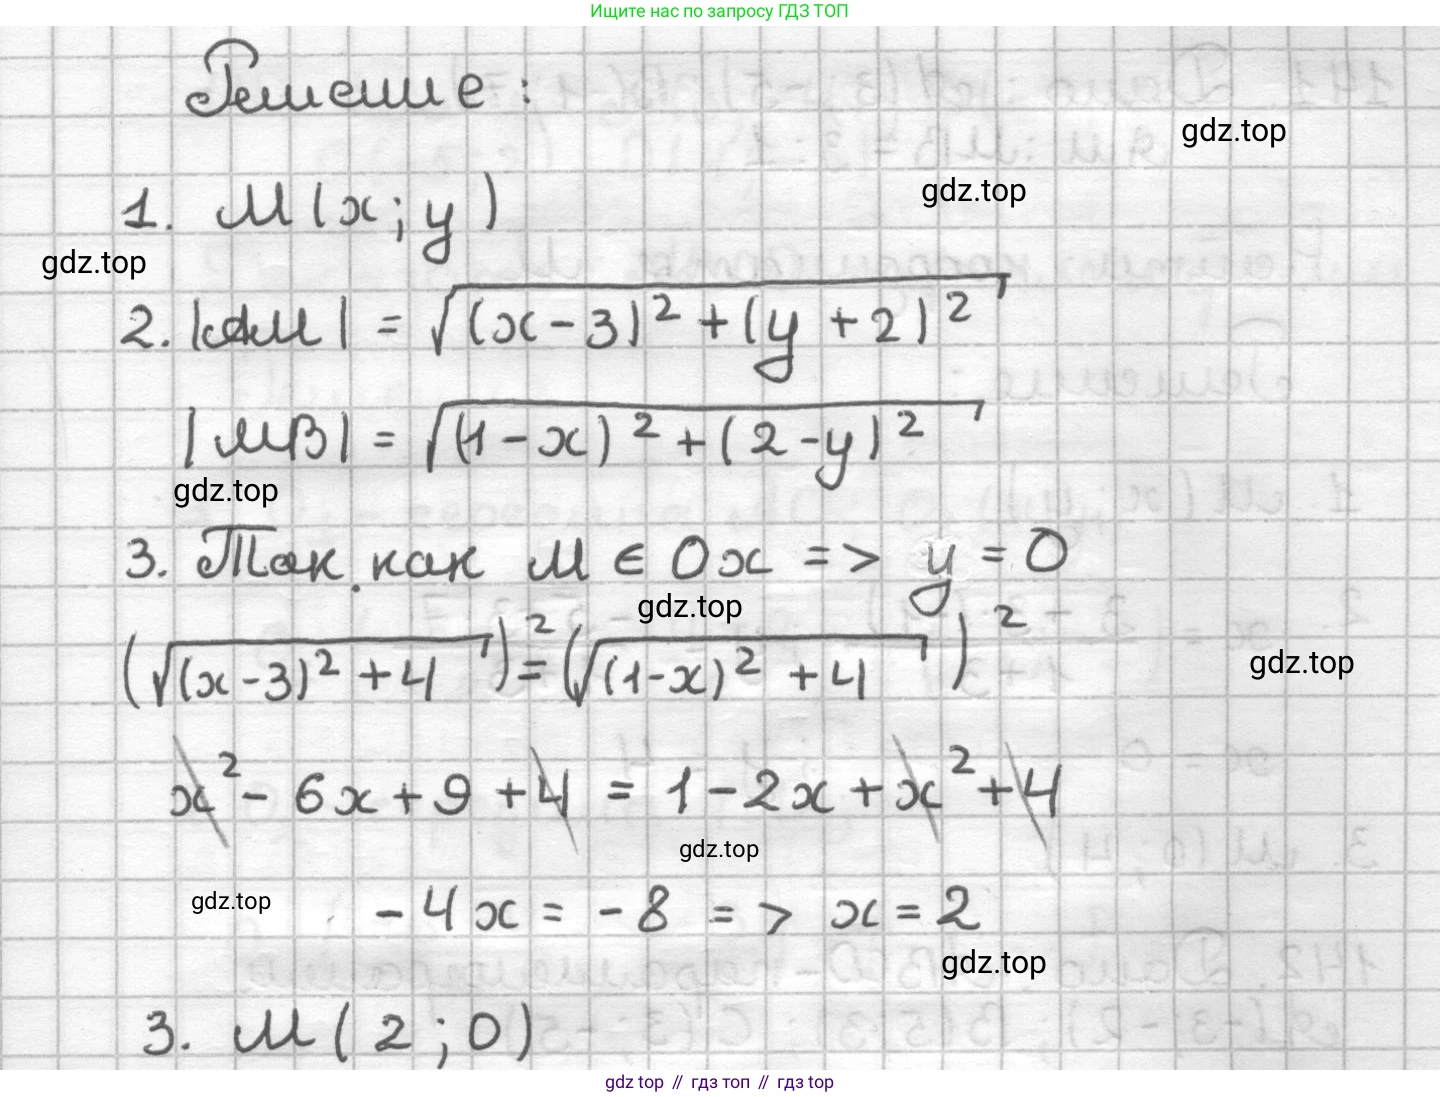 Ищите нас по запросу ГДЗ ТОП
Решение:
gdz.top
1. M(x; y)
gdz.top
gdz.top
2. |AM| = √((x-3)² + (y+2)²)
|MB| = √((1-x)² + (2-y)²)
gdz.top
3. Так как M ∈ Ox => y = 0
gdz.top
(√((x-3)² + 4))² = (√((1-x)² + 4))²
gdz.top
x² - 6x + 9 + 4 = 1 - 2x + x² + 4
gdz.top
gdz.top
-4x = -8 => x = 2
gdz.top
3. M(2; 0)
gdz top // гдз топ // gdz top